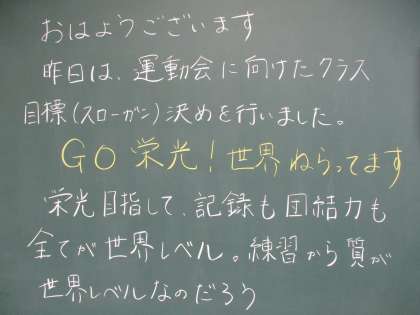 おはようございます
昨日は、運動会に向けたクラス
目標(スローガン)決めを行いました。
GO 栄光!世界ねらってます
栄光目指して、記録も団結力も
全てが世界レベル。練習から質が
世界レベルなのだろう